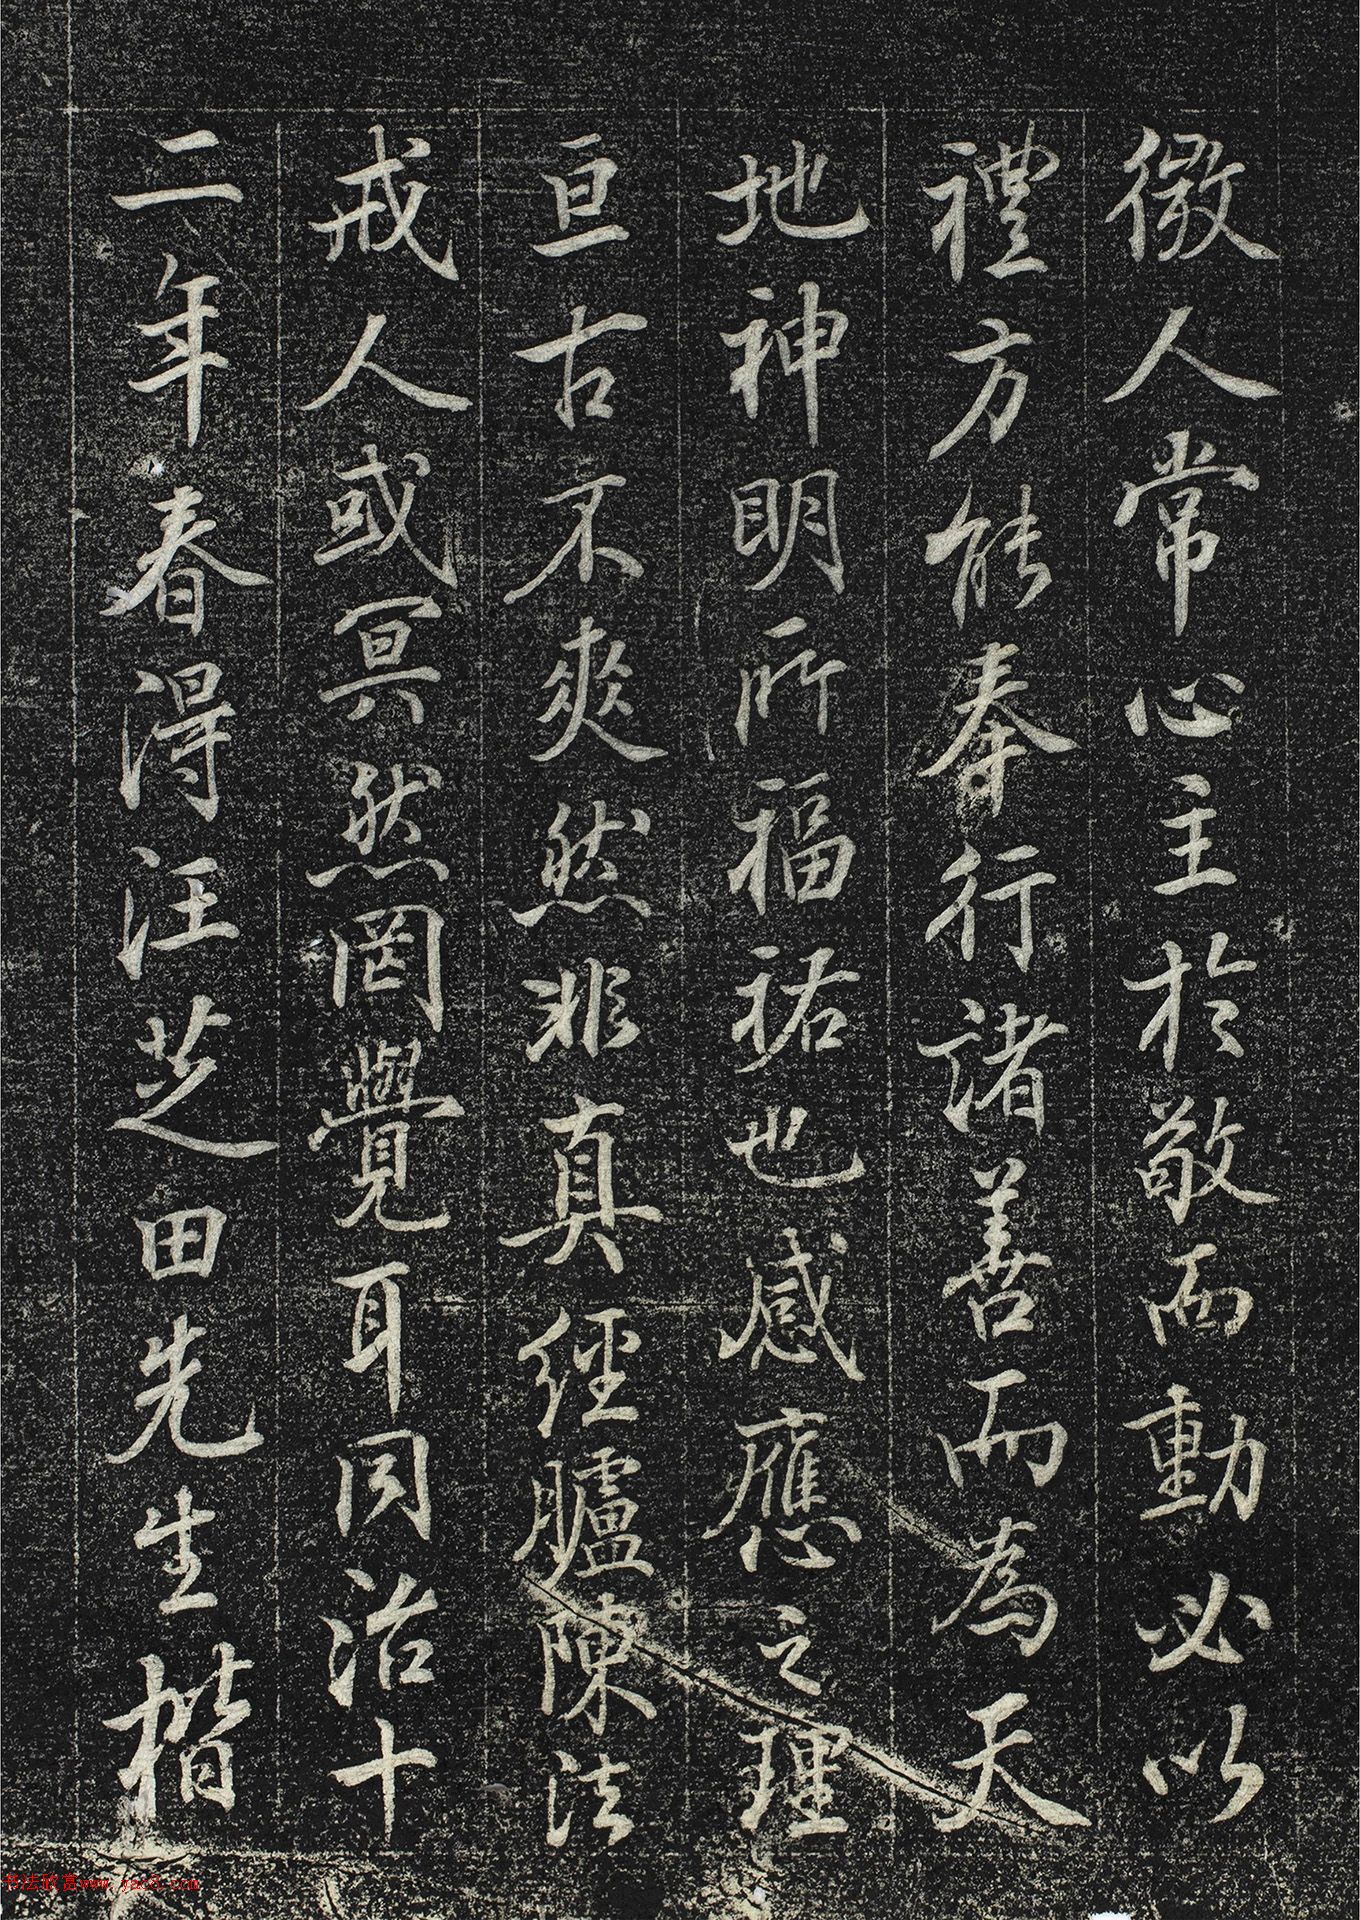 儆人常心主於敬而動必以
禮方能奉行諸善而為天
地神明所福祐也感應之理
亘古不爽然非真經臚陳法
戒人或冥然罔覺耳同治十
二年春得汪芝田先生楷
书法欣赏www.yac8.com